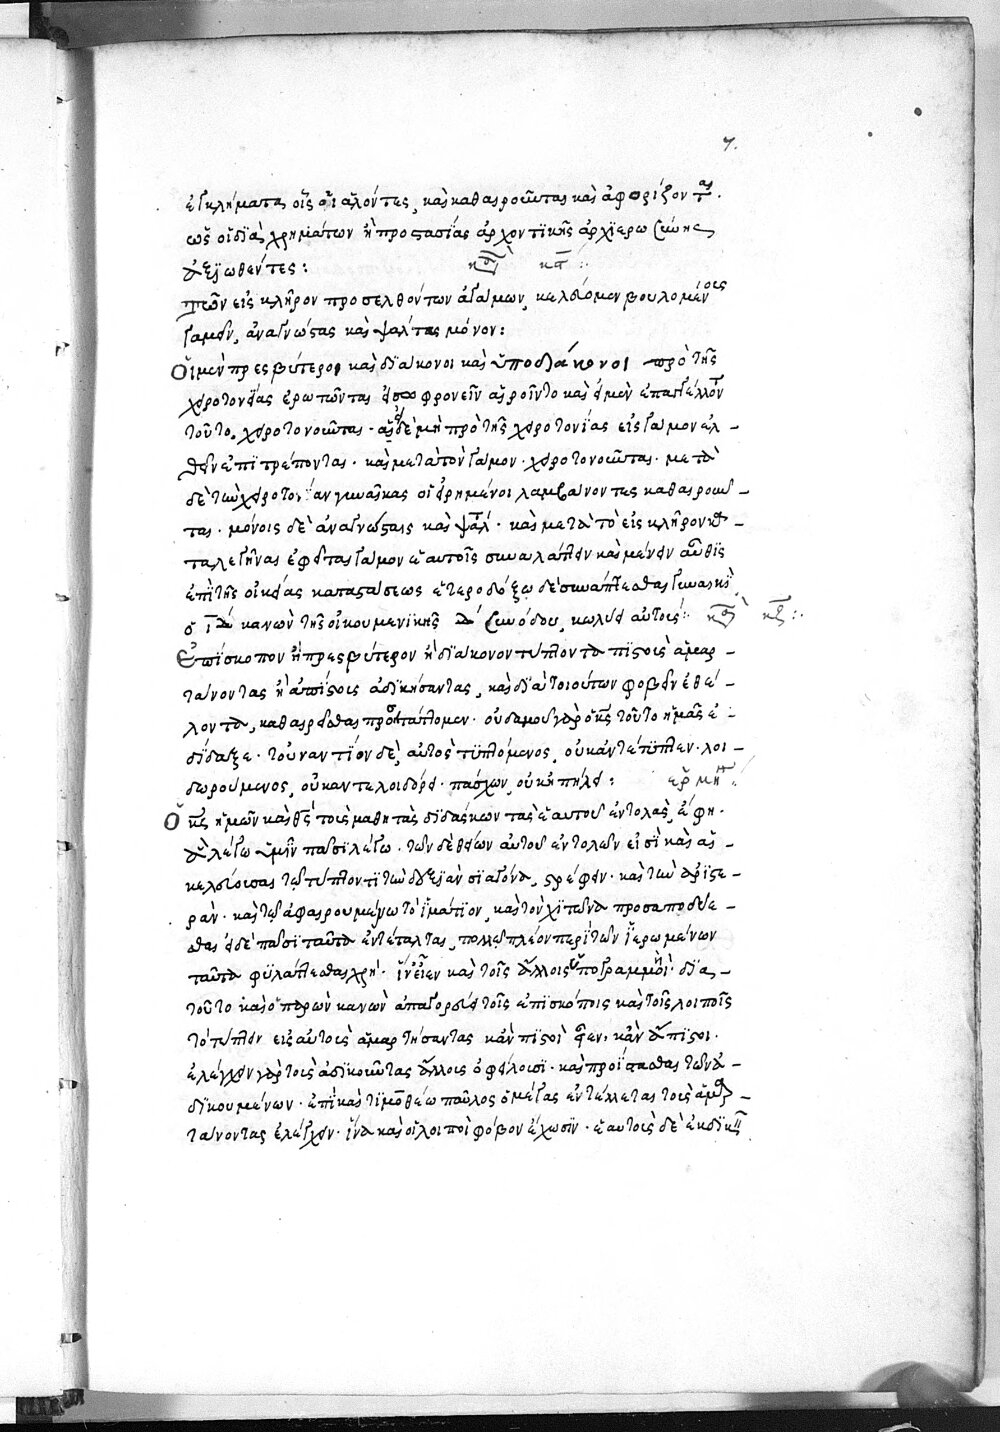 7.
ἐγκλήματα οἷς οἱ ἁλόντες, καὶ καθαιροῦνται καὶ ἀφορίζονται.
ὡς οἱ διὰ χρημάτων ἢ προστασίας ἀρχοντικῆς ἀρχιερωσύνης
ἀξιωθέντες :
κανὼν κϛ :
Τῶν εἰς κλῆρον προσελθόντων ἀγάμων, κελεύομεν βουλομένοις
γαμεῖν, ἀναγνώστας καὶ ψάλτας μόνον :
Οἱ μὲν πρεσβύτεροι καὶ διάκονοι καὶ ὑποδιάκονοι πρὸ τῆς
χειροτονίας ἐρωτῶνται εἰ σωφρονεῖν αἱροῖντο καὶ εἰ μὲν ἐπαγγέλλονται
τοῦτο, χειροτονοῦνται · εἰ δὲ μὴ πρὸ τῆς χειροτονίας εἰς γάμον ἐλ-
θεῖν ἐπιτρέπονται · καὶ μετὰ τὸν γάμον · χειροτονοῦνται · μετὰ
δὲ τὴν χειροτονίαν γυναῖκας οἱ εἰρημένοι λαμβάνοντες καθαιροῦν-
ται · μόνοις δὲ ἀναγνώσταις καὶ ψάλταις · καὶ μετὰ τὸ εἰς κλῆρον κα-
ταλεγῆναι ἐφεῖται γάμον ἑαυτοῖς συναλλάττειν καὶ μένειν αὖθις
ἐπὶ τῆς οἰκείας καταστάσεως ἑτεροδόξῳ δὲ συνάπτεσθαι γυναικὶ
ὁ ιδ κανὼν τῆς οἰκουμενικῆς δ συνόδου, κωλύει αὐτούς : κανὼν κζ :
Ἐπίσκοπον ἢ πρεσβύτερον ἢ διάκονον τύπτοντα πιστοὺς ἁμαρ-
τάνοντας ἢ ἀπίστους ἀδικήσαντας, καὶ διὰ τοιούτων φοβεῖν ἐθέ-
λοντα, καθαιρεῖσθαι προστάττομεν · οὐδαμοῦ γὰρ ὁ κς τοῦτο ἡμᾶς ἐ-
δίδαξε · τοὐναντίον δὲ, αὐτὸς τυπτόμενος, οὐκ ἀντέτυπτεν · λοι-
δωρούμενος, οὐκ ἀντελοιδόρει · πάσχων, οὐκ ἠπείλει : ἑρμη :
Ὁ κς ἡμῶν καὶ θς τοὺς μαθητὰς διδάσκων τὰς ἑαυτοῦ ἐντολὰς, ἔφη ·
ἃ λέγω ὑμῖν πᾶσι λέγω · τῶν δὲ θείων αὐτοῦ ἐντολῶν εἰσὶ καὶ αἱ
κελεύουσαι τῷ τύπτοντι τὴν δεξιὰν σιαγόνα, στρέφειν · καὶ τὴν ἀριστε-
ράν · καὶ τῷ ἀφαιρουμένῳ τὸ ἱμάτιον, καὶ τὸν χιτῶνα προσαποδύε-
σθαι εἰ δὲ πᾶσι ταῦτα ἐντέταλται, πολλῷ πλέον περὶ τῶν ἱερωμένων
ταῦτα φυλάττεσθαι χρή · ἵν' εἶεν καὶ τοῖς ἄλλοις ὑπογραμμοί · διὰ
τοῦτο καὶ ὁ παρὼν κανὼν ἀπαγορεύει τοῖς ἐπισκόποις καὶ τοῖς λοιποῖς
τὸ τύπτειν εἰς αὐτοὺς ἁμαρτήσαντας κἂν πιστοὶ εἶεν, κἂν ἄπιστοι ·
ἐλέγχειν γὰρ τοὺς ἀδικοῦντας ἄλλους ὀφείλουσι · καὶ προΐστασθαι τῶν ἀ-
δικουμένων · ἐπεὶ καὶ τιμοθέῳ παῦλος ὁ μέγας ἐντέλλεται τοὺς ἁμαρ-
τάνοντας ἐλέγχειν · ἵνα καὶ οἱ λοιποὶ φόβον ἔχωσιν · ἑαυτοὺς δὲ ἐκδικεῖν